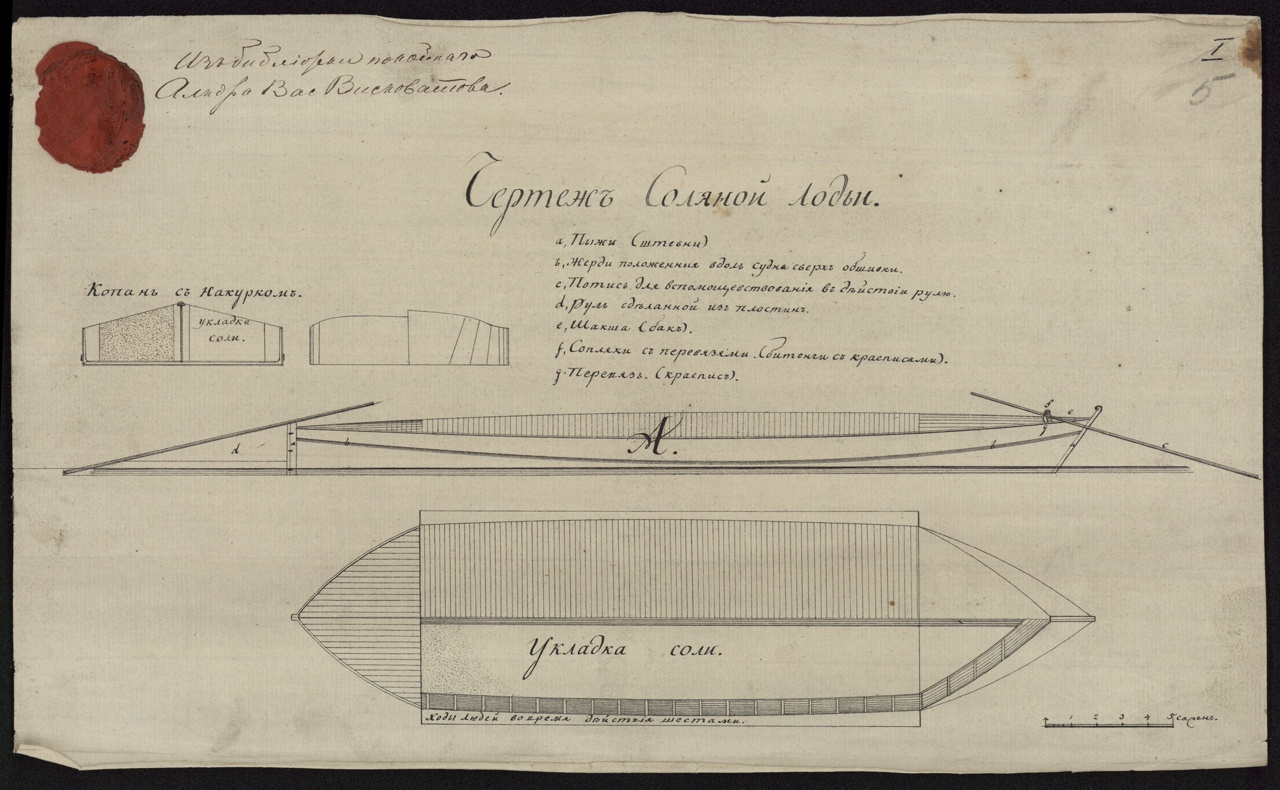 Изъ библіотеки покойнаго
Алндра Вас Висковатова.
I
5
Чертежъ Соляной лодьи.
a, Пыжи (штевни)
b, Жерди положенния вдоль судна сверхъ обшивки.
c, Потись для вспомоществованія въ дѣйствіи рулю.
d, Руль сдѣланной изъ пластинъ.
e, Шакша (бакъ).
f, Сопляки съ перевязями. (битенги съ красписами).
g Перевязь. (краспись).
Копань съ Накуркомъ.
укладка
соли.
d
b
A.
b
f
e
g
a
c
Укладка соли.
Ходы людей во время дѣйствія шестами.
1 2 3 4 5 сажень.